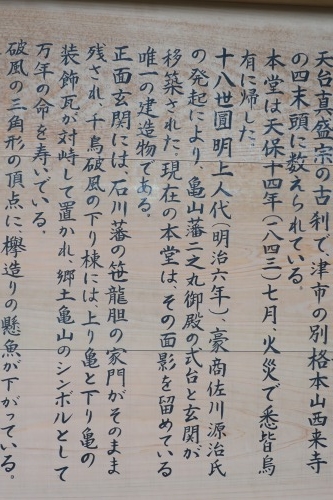 天台真盛宗の古刹で、津市の別格本山西来寺
の四末頭に数えられている。
本堂は天保十四年(一八四三)七月、火災で悉皆烏
有に帰した。
十八世圓明上人代(明治六年)、豪商佐川源治氏
の発起により、亀山藩二之丸御殿の式台と玄関が
移築された。現在の本堂は、その面影を留めている
唯一の建造物である。
正面玄関には、石川藩の笹龍胆の家門がそのまま
残され、千鳥破風の下り棟には、上り亀と下り亀の
装飾瓦が対峙して置かれ、郷土亀山のシンボルとして
万年の命を寿いでいる。
破風の三角形の頂点に、欅造りの懸魚が下がっている。